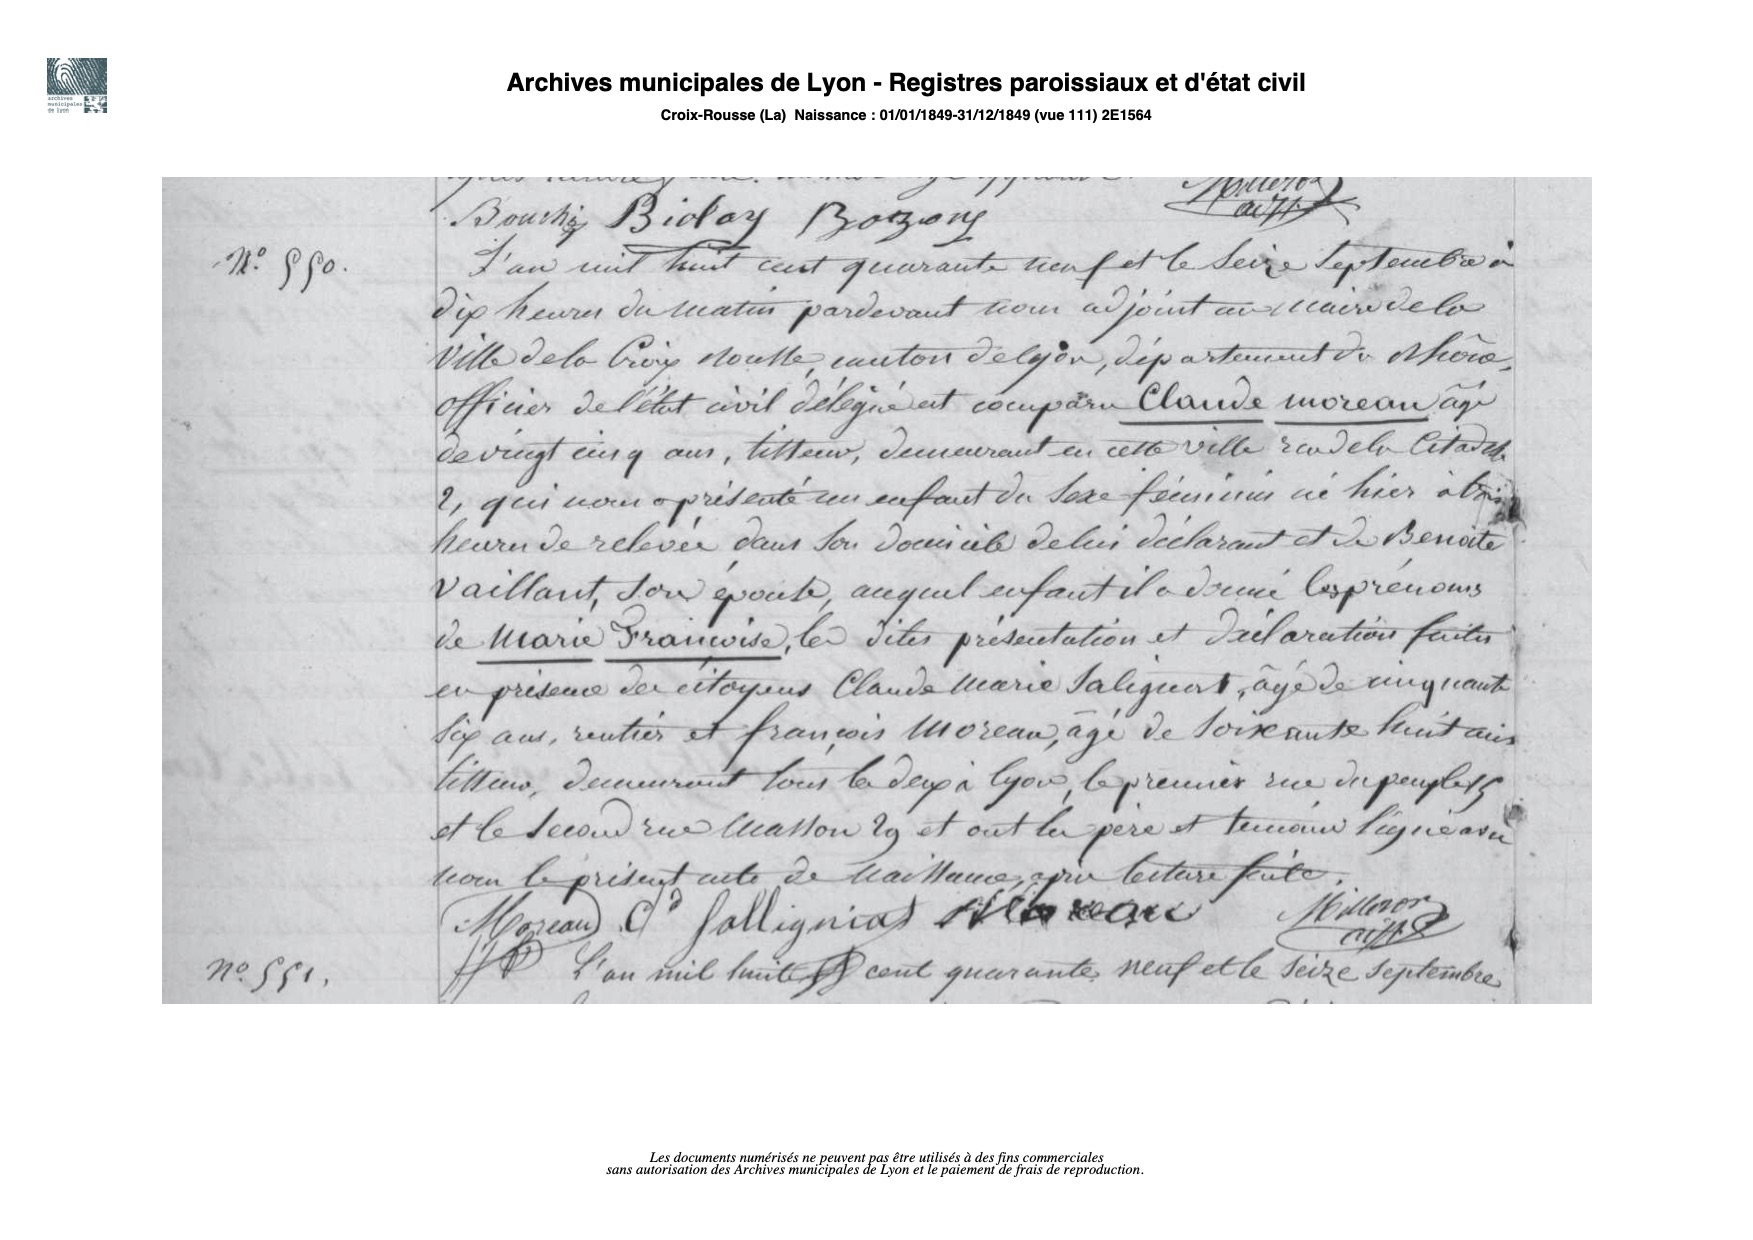 archives
municipales
de lyon
Archives municipales de Lyon - Registres paroissiaux et d'état civil
Croix-Rousse (La) Naissance : 01/01/1849-31/12/1849 (vue 111) 2E1564
Biolay Bozon
N.° 550.
L'an mil huit cent quarante neuf et le seize septembre à
dix heures du matin pardevant nous adjoint au maire de la
ville de la Croix rousse, canton de lyon, département du rhône,
officier de l'état civil délégué est comparu Claude moreau âgé
de vingt cinq ans, tisseur, demeurant en cette ville rue de la Citadelle
2, qui nous a présenté un enfant du sexe féminin né hier à trois
heures de relevée dans son domicile de lui déclarant et de Benoite
vaillant, son épouse, auquel enfant il a donné les prénoms
de Marie Francoise, les dites présentation et déclaration faites
en présence des citoyens Claude Marie Salignat, âgé de cinquante
six ans, rentier et françois Moreau, âgé de soixante huit ans
tisseur, demeurant tous les deux à lyon, le premier rue du peuple 15
et le second rue Masson 29 et ont les père et temoins signé avec
nous le présent acte de naissance, après lecture faite.
Moreau Cd Sallignat Moreau
N° 551.
L'an mil huit cent quarante neuf et le seize septembre
Les documents numérisés ne peuvent pas être utilisés à des fins commerciales
sans autorisation des Archives municipales de Lyon et le paiement de frais de reproduction.